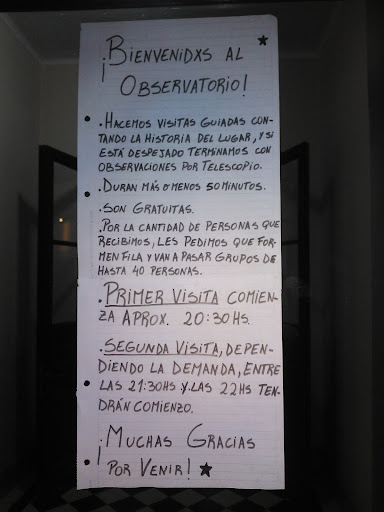 ¡BIENVENIDXS AL
OBSERVATORIO!
• HACEMOS VISITAS GUIADAS CON-
TANDO LA HISTORIA DEL LUGAR, Y SI
ESTÁ DESPEJADO TERMINAMOS CON
OBSERVACIONES POR TELESCOPIO.
• DURAN MÁS O MENOS 50 MINUTOS.
• SON GRATUITAS.
• POR LA CANTIDAD DE PERSONAS QUE
RECIBIMOS, LES PEDIMOS QUE FOR-
MEN FILA Y VAN A PASAR GRUPOS DE
HASTA 40 PERSONAS.
• PRIMER VISITA COMIEN-
ZA APROX. 20:30HS.
• SEGUNDA VISITA, DEPEN-
DIENDO LA DEMANDA, ENTRE
LAS 21:30HS Y LAS 22HS TEN-
DRÁN COMIENZO.
¡MUCHAS GRACIAS
POR VENIR!